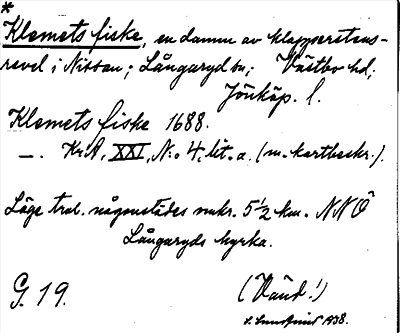 *
Klemets fiske, en damm av klapperstens-
revel i Nissan; Långaryd sn; Västbo hd;
Jönköp. l.
Klemets fiske 1688.
—. Kr.A, XXI, N:o 4, lit. a. (m. kartbeskr.).
Läge trol. någonstädes omkr. 5 1/2 km. NNÖ
Långaryds kyrka.
G. 19.
(Vänd!)
1938.